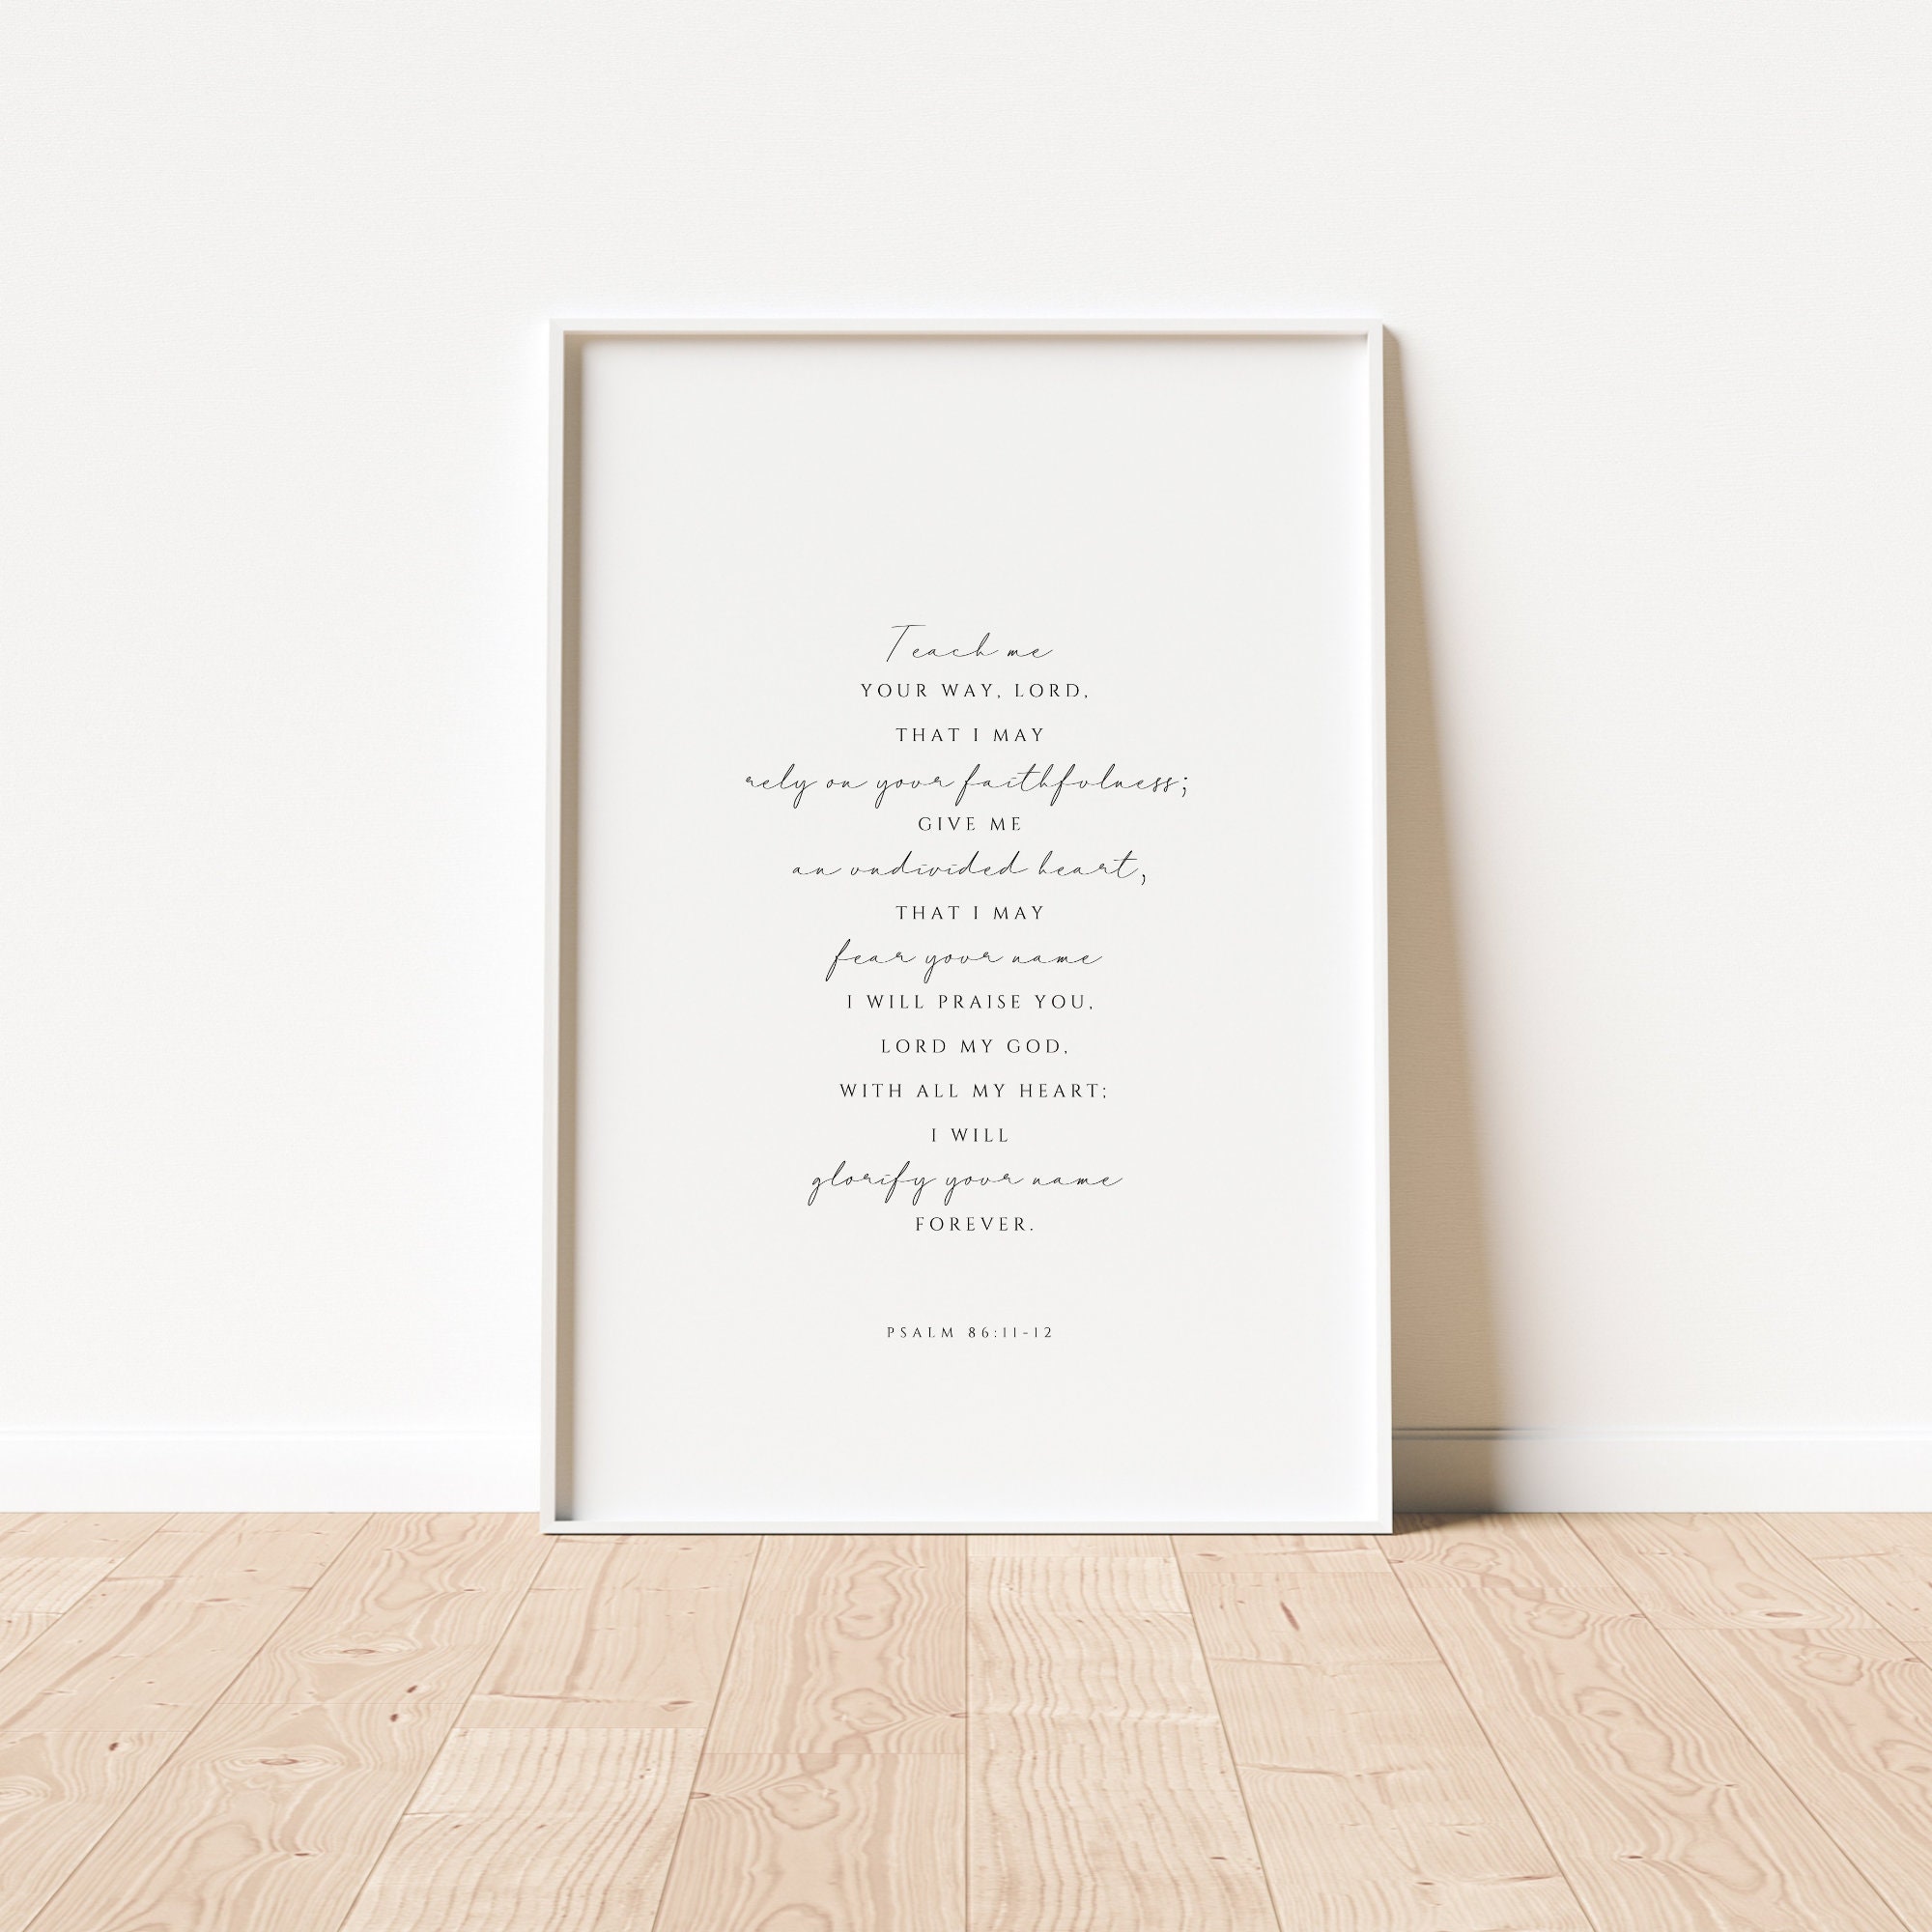 Teach me
YOUR WAY, LORD,
THAT I MAY
rely on your faithfulness;
GIVE ME
an undivided heart,
THAT I MAY
fear your name
I WILL PRAISE YOU,
LORD MY GOD,
WITH ALL MY HEART;
I WILL
glorify your name
FOREVER.
PSALM 86:11-12